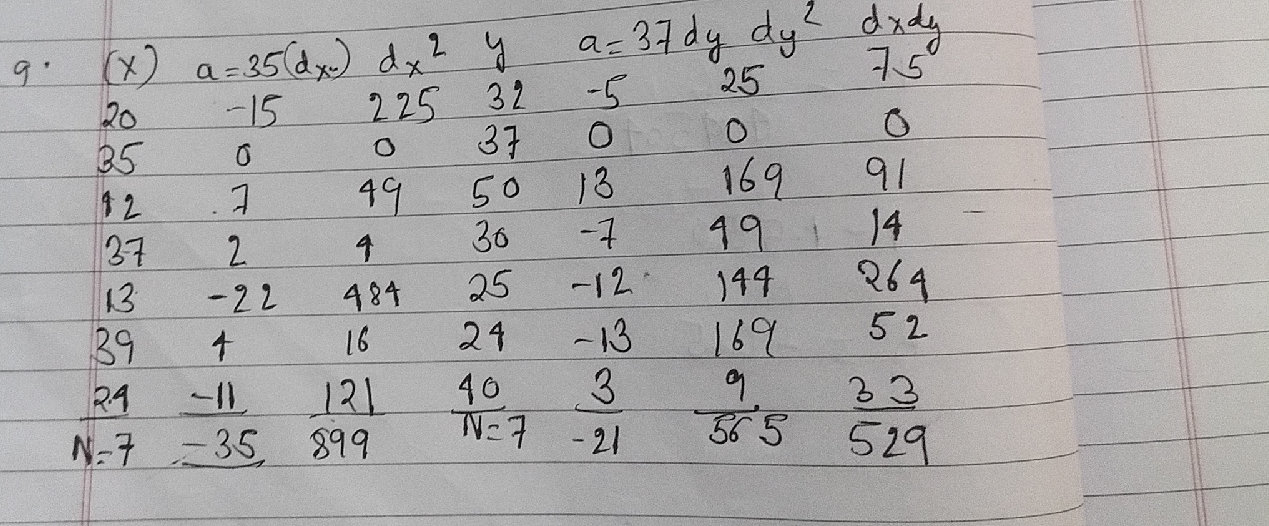 9. (x) a=35(dx) dx² y a=37dy dy² dxdy
20 -15 225 32 -5 25 75
35 0 0 37 0 0 0
42 7 49 50 13 169 91
37 2 4 30 -7 49 14
13 -22 484 25 -12 144 264
39 4 16 24 -13 169 52
24 -11 121 40 3 9 33
N=7 -35 899 N=7 -21 565 529